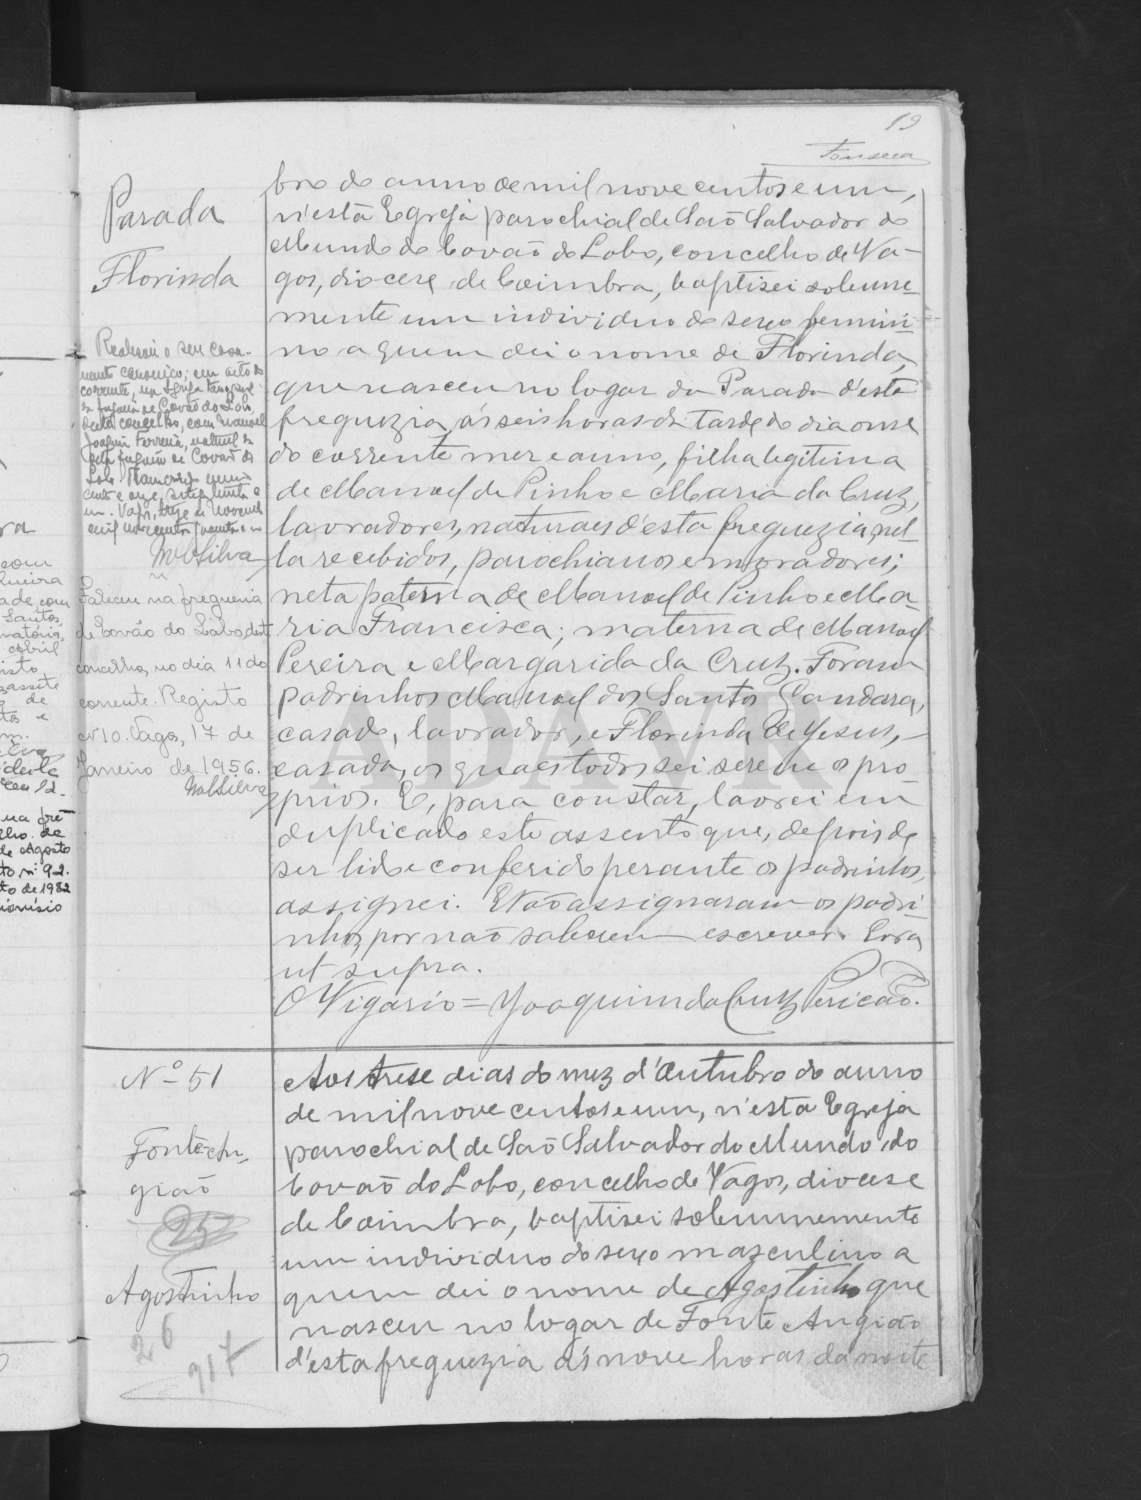 19
Fonseca
Parada
Florinda
Realizou o seu casa-
mento canonico, em oito do
corrente, na Igreja Paroquial
da freguesia de Covão do Lobo,
deste concelho, com Manuel
Joaquim Ferreira, natural da
dita freguesia de Covão do
Lobo.
Vagos, treze de Novembro
mil novecentos
MASilva
Faleceu na freguesia
de Covão do Lobo, deste
concelho, no dia 11 do
corrente. Registo
Nº 10. Vagos, 17 de
Janeiro de 1956.
MASilva
bro do anno de mil nove centos e um,
n'esta Egreja parochial de São Salvador do
Mundo do Covão do Lobo, concelho de Va-
gos, diocese de Coimbra, baptisei solemne-
mente um individuo do sexo femini-
no a quem dei o nome de Florinda,
que nasceu no logar da Parada d'esta
freguezia, ás seis horas da tarde do dia onse
do corrente mez e anno, filha legitima
de Manoel de Pinho e Maria da Cruz,
lavradores, naturaes d'esta freguezia, nel-
la recebidos, parochianos e moradores;
neta paterna de Manoel de Pinho e Ma-
ria Francisca; materna de Manoel
Pereira e Margarida da Cruz. Foram
padrinhos Manoel dos Santos Gandara,
casado, lavrador, e Florinda de Jesus,
casada, os quaes todos sei serem os pro-
prios. E, para constar, lavrei em
duplicado este assento que, depois de
ser lido e conferido perante os padrinhos,
assignei. Não assignaram os padri-
nhos, por não saberem escrever. Era
ut supra.
O Vigario = Joaquim da Cruz Pericão.
Nº 51
Fonte An-
gião
25
Agostinho
26
917
Aos trese dias do mez d'Outubro do anno
de mil nove centos e um, n'esta Egreja
parochial de São Salvador do Mundo do
Covão do Lobo, concelho de Vagos, diocese
de Coimbra, baptisei solemnemente
um individuo do sexo masculino a
quem dei o nome de Agostinho que
nasceu no logar de Fonte Angião
d'esta freguezia ás nove horas da noite
ADAVR